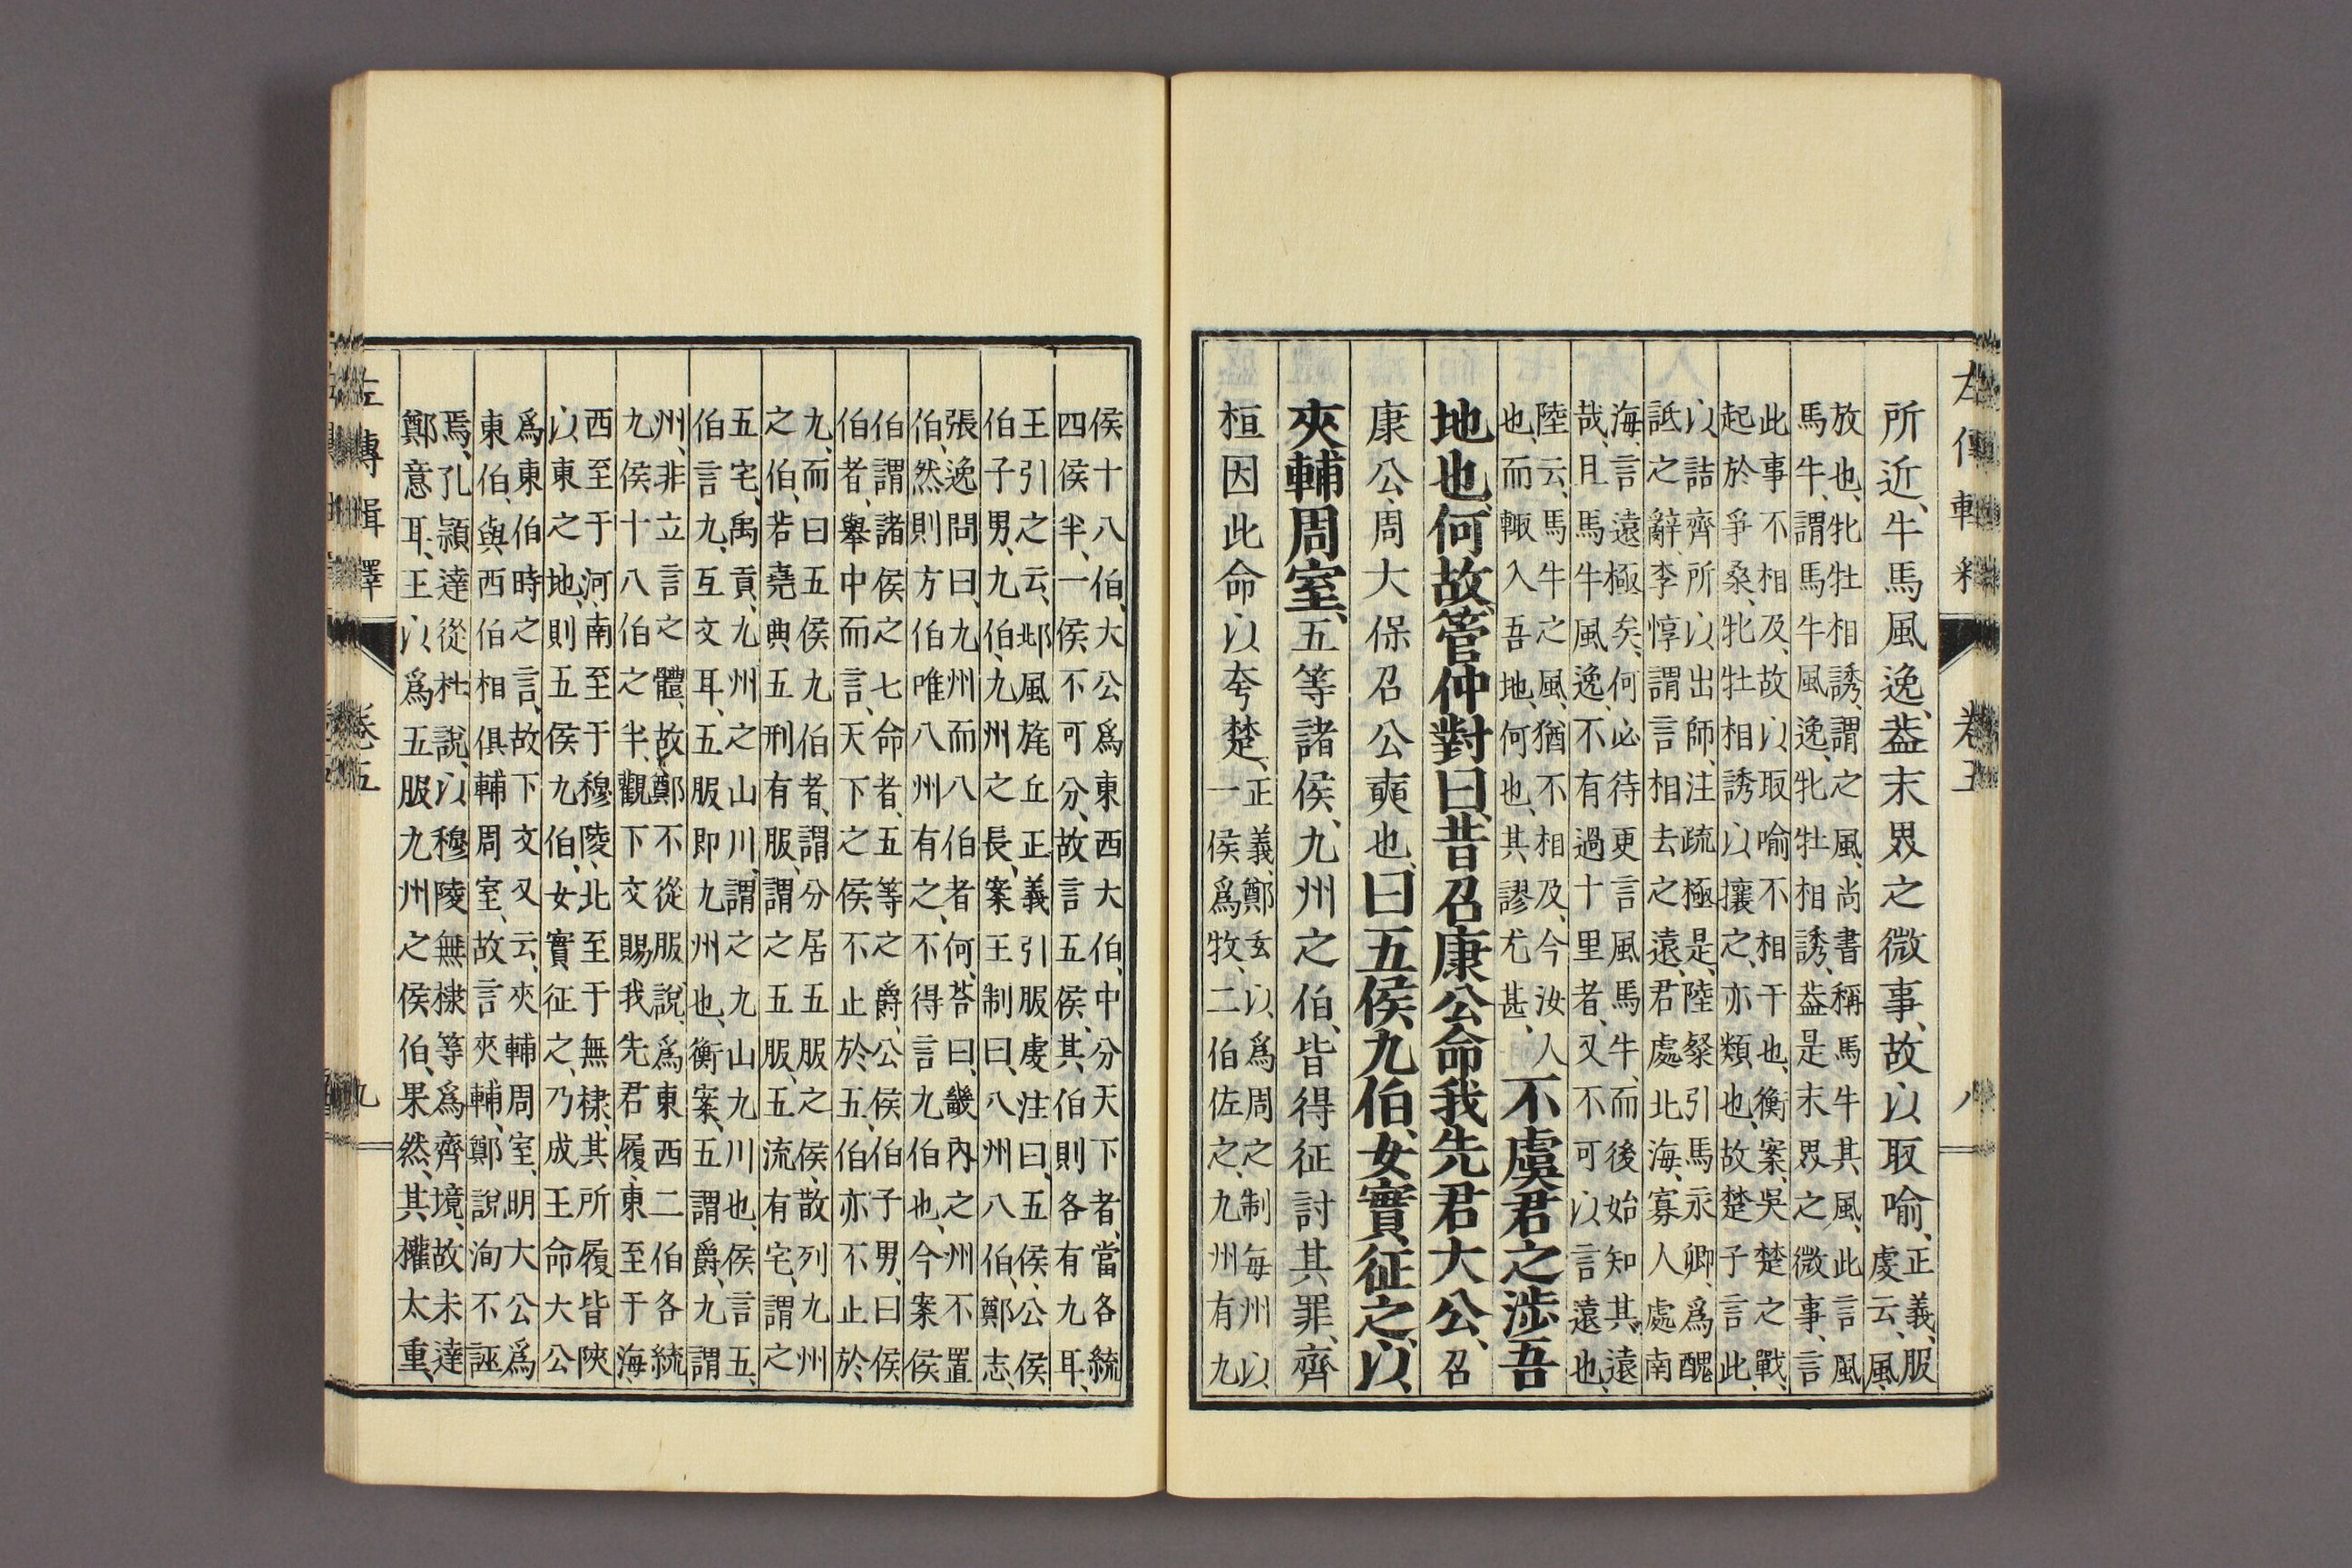 左傳輯釋　卷五　八
所近、牛馬風逸、葢末界之微事、故以取喻、
正義、服
虔云、風、
放也、牝牡相誘、謂之風、尚書稱馬牛其風、此言風
馬牛、謂馬牛風逸、牝牡相誘、葢是末界之微事、言
此事不相及、故以取喻不相干也、衡案、吳楚之戰、
起於爭桑、牝牡相誘以攘之、亦類也、故楚子言此、
以詰齊所以出師、注疏極是、陸粲引馬永卿、爲醜
詆之辭、李惇謂言相去之遠、君處北海、寡人處南
海、言遠極矣、何必待更言風馬牛、而後始知其遠
哉、且馬牛風逸、不有過十里者、又不可以言遠也、
陸云、馬牛之風、猶不相及、今汝人
也、而輙入吾地、何也、其謬尤甚、
不虞君之涉吾
地也、何故、管仲對曰、昔召康公命我先君大公、召
康公、周大保召公奭也、曰五侯九伯、女實征之、以
夾輔周室、五等諸侯、九州之伯、皆得征討其罪、齊
桓因此命以夸楚、
正義、鄭玄以爲周之制每州以
一侯爲牧、二伯佐之、九州有九
侯十八伯、大公爲東西大伯、中分天下者、當各統
四侯半、一侯不可分、故言五侯、其伯則各有九耳、
王引之云、邶風旄丘正義引服虔注曰、五侯公侯
伯子男、九伯、九州之長、案王制曰、八州八伯、鄭志、
張逸問曰、九州而八伯者、何、荅曰、畿內之州不置
伯、然則方伯唯八州有之、不得言九伯也、今案侯
伯謂諸侯、之七命者、五等之爵、公侯伯子男、曰侯
伯者、舉中而言、天下之侯不止於五、伯亦不止於
九、而曰五侯九伯者、謂分居五服之侯、散列九州
之伯、若堯典五刑有服、謂之五服、五流有宅、謂之
五宅、禹貢、九州之山川、謂之九山九川也、侯言五、
伯言九、互文耳、五服即九州也、衡案、五謂爵、九謂
州、非立言之體、故鄭不從服說、爲東西二伯各統
九侯十八伯之半、觀下文賜我先君履、東至于海、
西至于河、南至于穆陵、北至于無棣、其所履皆陝
以東之地、則五侯九伯、女實征之、乃成王命大公
爲東伯時之言、故下文又云、夾輔周室、明大公爲
東伯、與西伯相俱輔周室、故言夾輔、鄭說洵不誣
焉、孔頴達從杜說、以穆陵無棣等爲齊境、故未達
鄭意耳、王以爲五服九州之侯伯、果然、其權太重、
左傳輯釋　卷五　九